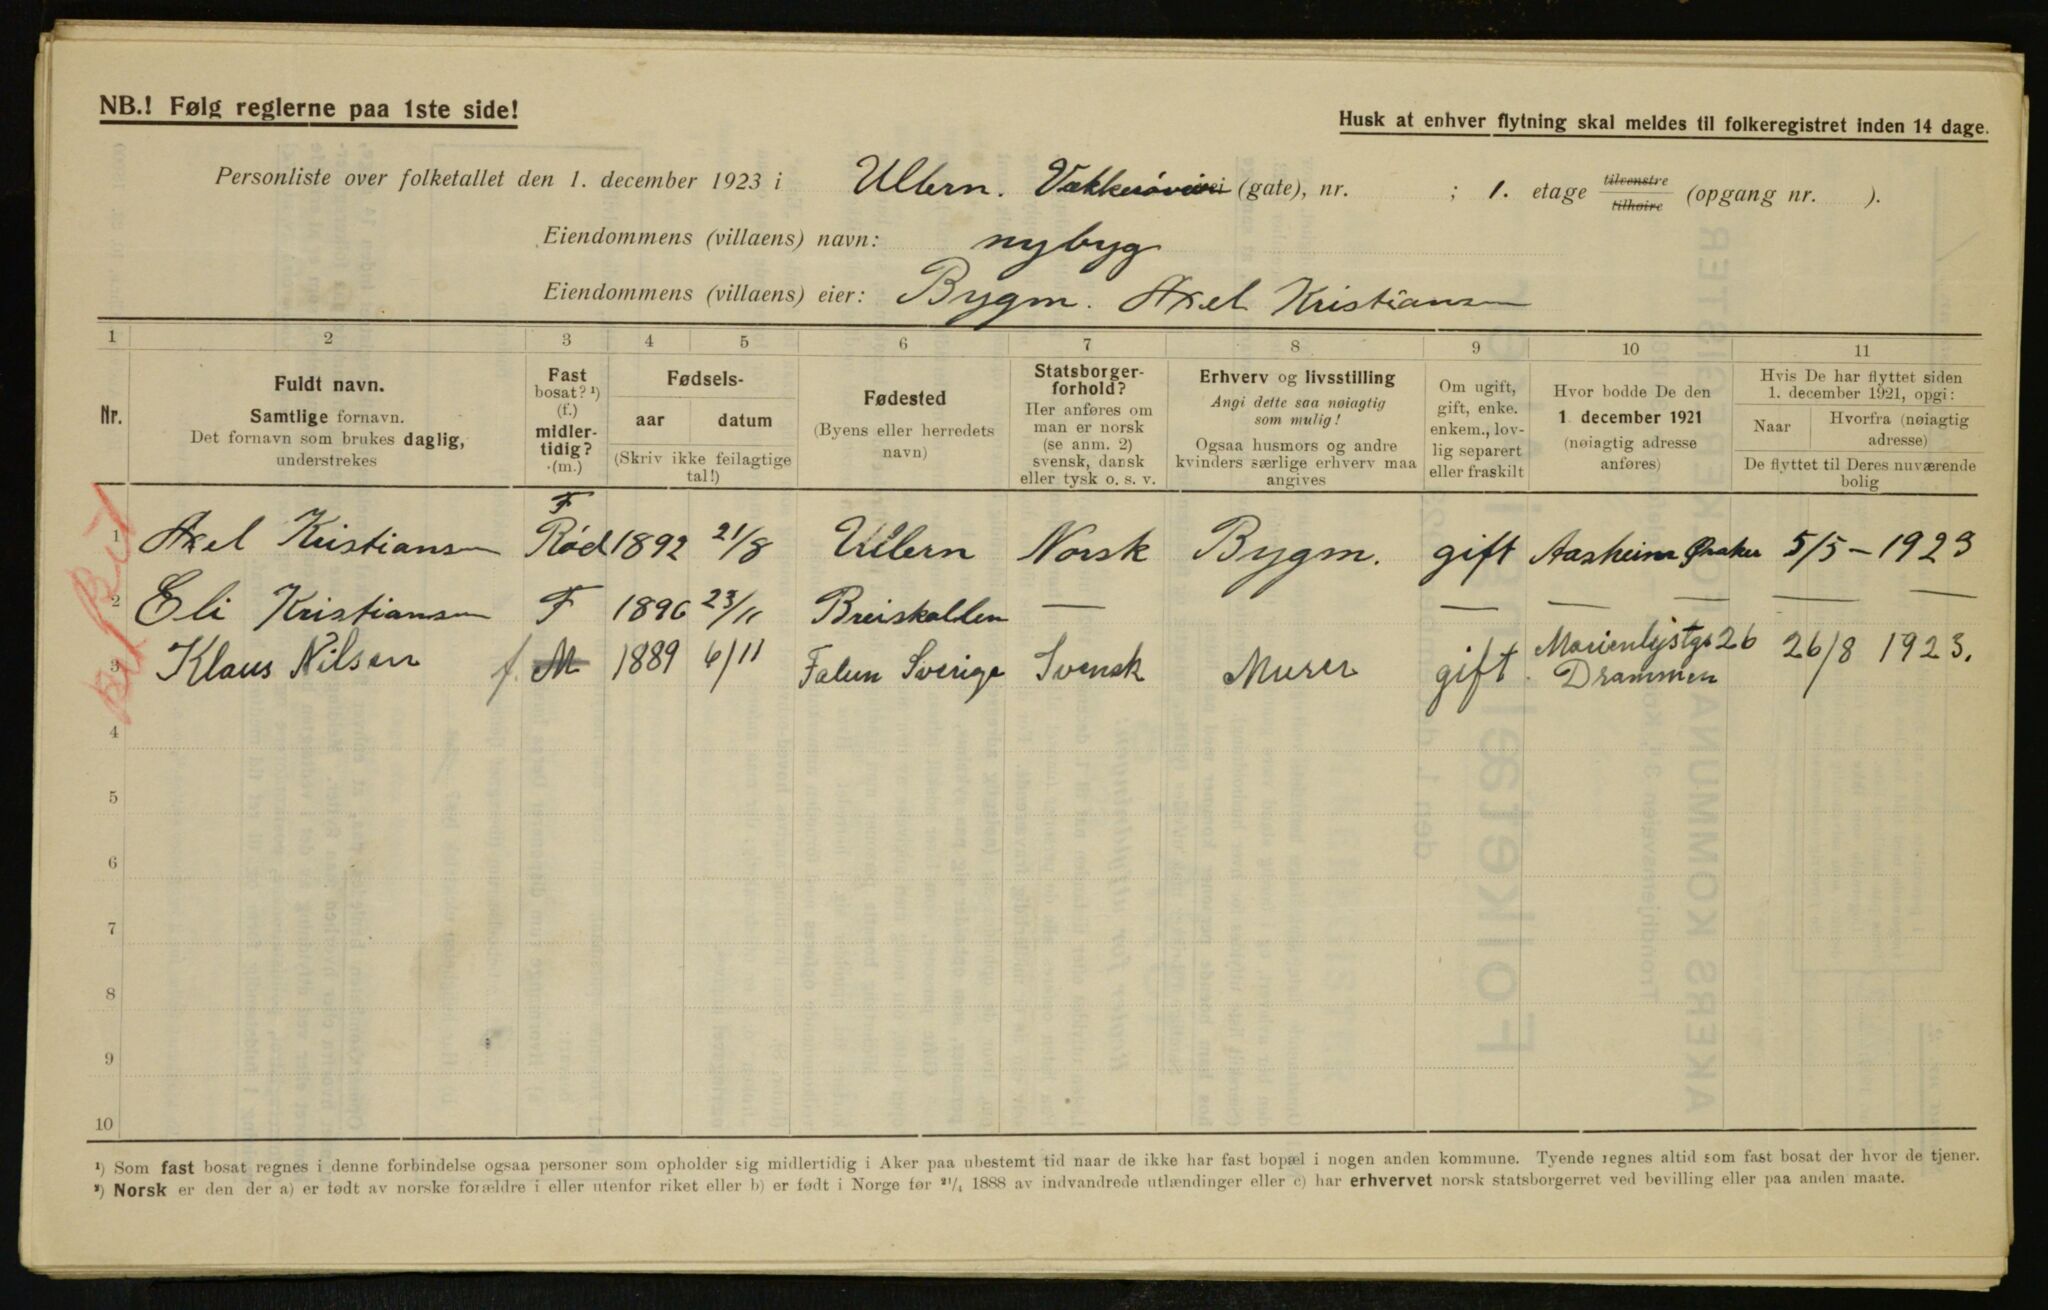 NB.! Følg reglerne paa 1ste side!
Husk at enhver flytning skal meldes til folkeregistret inden 14 dage.
Personliste over folketallet den 1. december 1923 i Ullern. Vækkerøveien (gate), nr. ; 1. etage tilvenstre tilhøire (opgang nr. ).
Eiendommens (villaens) navn: nybyg
Eiendommens (villaens) eier: Bygm. Axel Kristiansen
1 2 3 4 5 6 7 8 9 10 11
Nr.
Fuldt navn.
Samtlige fornavn.
Det fornavn som brukes daglig,
understrekes
Fast
bosat? ¹)
(f.)
midler-
tidig?
(m.)
Fødsels-
aar datum
(Skriv ikke feilagtige
tal!)
Fødested
(Byens eller herredets
navn)
Statsborger-
forhold?
Her anføres om
man er norsk
(se anm. 2)
svensk, dansk
eller tysk o. s. v.
Erhverv og livsstilling
Angi dette saa nøiagtig
som mulig!
Ogsaa husmors og andre
kvinders særlige erhverv maa
angives
Om ugift,
gift, enke.
enkem., lov-
lig separert
eller fraskilt
Hvor bodde De den
1. december 1921
(nøiagtig adresse
anføres)
Hvis De har flyttet siden
1. december 1921, opgi:
Naar Hvorfra (nøiagtig
adresse)
De flyttet til Deres nuværende
bolig
F
1 Axel Kristiansen Rød 1892 21/8 Ullern Norsk Bygm. gift Aasheim Øraker 5/5 – 1923
2 Eli Kristiansen F 1896 23/11 Breiskallen — — — — — —
3 Klaus Nilsen f. M 1889 6/11 Falun Sverige Svensk Murer gift. Marienlystgt 26 Drammen 26/8 1923.
4
5
6
7
8
9
10
¹) Som fast bosat regnes i denne forbindelse ogsaa personer som opholder sig midlertidig i Aker paa ubestemt tid naar de ikke har fast bopæl i nogen anden kommune. Tyende regnes altid som fast bosat der hvor de tjener.
²) Norsk er den der a) er født av norske forældre i eller utenfor riket eller b) er født i Norge før 21/4 1888 av indvandrede utlændinger eller c) har erhvervet norsk statsborgerret ved bevilling eller paa anden maate.